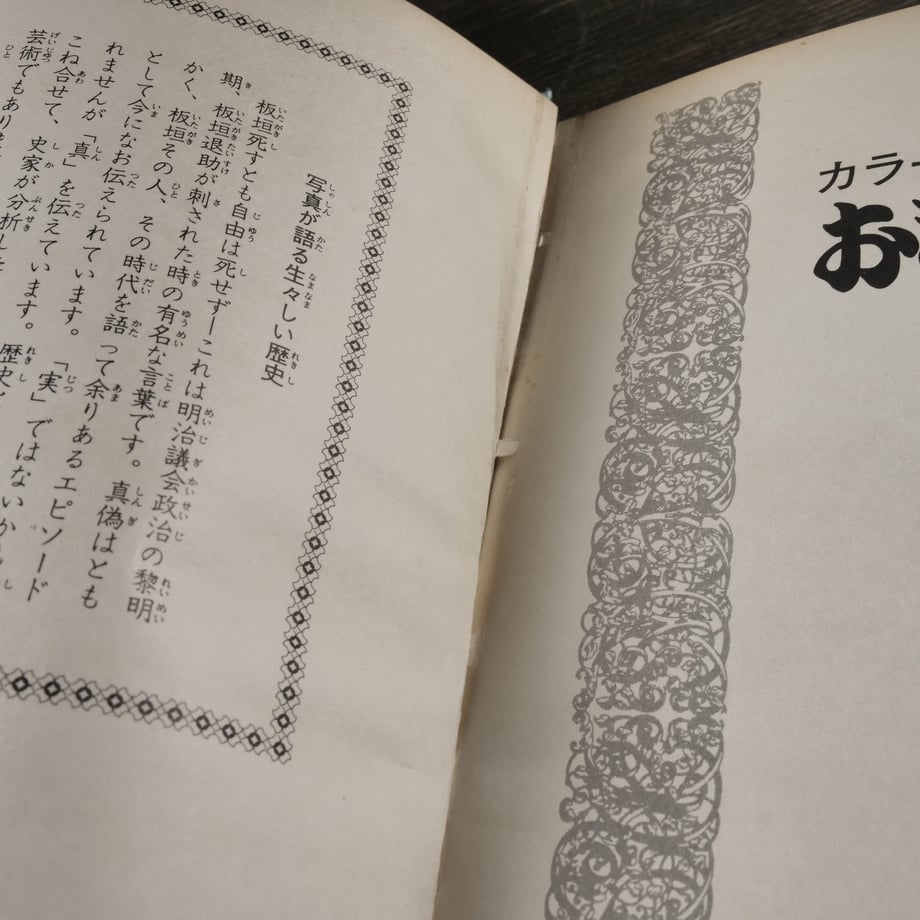 写真が語る生々しい歴史
板垣死すとも自由は死せずーこれは明治議会政治の黎明
期、板垣退助が刺された時の有名な言葉です。真偽はとも
かく、板垣その人、その時代を語って余りあるエピソード
として今になお伝えられています。「実」ではないかもし
れませんが「真」を伝えています。
こね合せて、史家が分析した
芸術でもあり
カラ
お